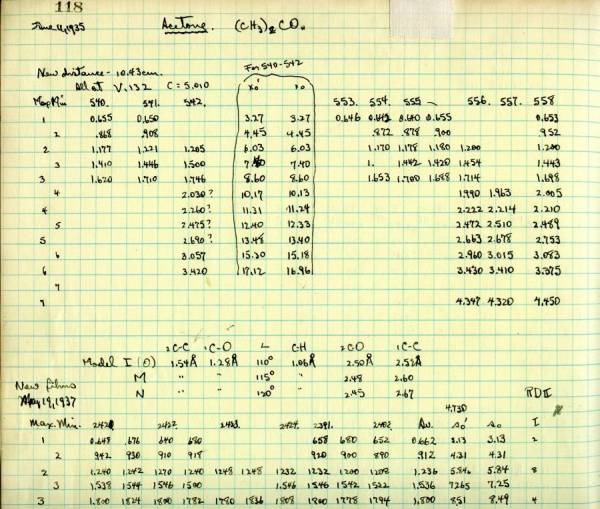 118
June 4, 1935 Acetone. (CH3)2 CO.
For 540-542
New distance - 10.43 cm.
All at V.132 C = 5.010 x0' x0
Max Min 540. 541. 542. 553. 554. 555 ~ 556. 557. 558
1 0.655 0.650 3.27 3.27 0.646 0.642 0.640 0.655 0.653
2 .868 .908 4.45 4.45 .872 .878 .900 .952
2 1.177 1.221 1.205 6.03 6.03 1.170 1.178 1.180 1.200 1.200
3 1.410 1.446 1.500 7.40 1. 1.442 1.420 1.454 1.443
3 1.620 1.710 1.746 8.60 8.60 1.653 1.700 1.688 1.714 1.698
4 2.030? 10.17 10.13 1.990 1.963 2.005
4 2.260? 11.31 11.24 2.222 2.214 2.210
5 2.475? 12.40 12.33 2.472 2.510 2.489
5 2.690? 13.48 13.40 2.663 2.678 2.753
6 3.057 15.30 15.18 2.960 3.015 3.083
6 3.420 17.12 16.96 3.430 3.410 3.375
7
7 4.347 4.320 4.450
C-C C-O L C-H C-C
Model I (O) 1.54Å 1.28Å 110° 1.06Å 2.50Å 2.52Å
M " " 115° " 2.48 2.60
New films N " " 120° " 2.45 2.67
May 19, 1937 RD II
4.730
Max. Min. 2422. 2423. 2424. 2391. 2402. Av. s0' s0 I
1 0.648 .676 640 680 658 680 652 0.662 3.13 3.13 2
2 942 930 910 918 920 900 890 .912 4.31 4.31
2 1.240 1.242 1270 1240 1248 1248 1232 1232 1200 1208 1.236 5.84 8
3 1.538 1544 1546 1500 1.546 1546 1542 1522 1.536 7.265 7.25
3 1.800 1824 1800 1782 1780 1836 1808 1800 1778 1794 1.800 8.51 8.49 4